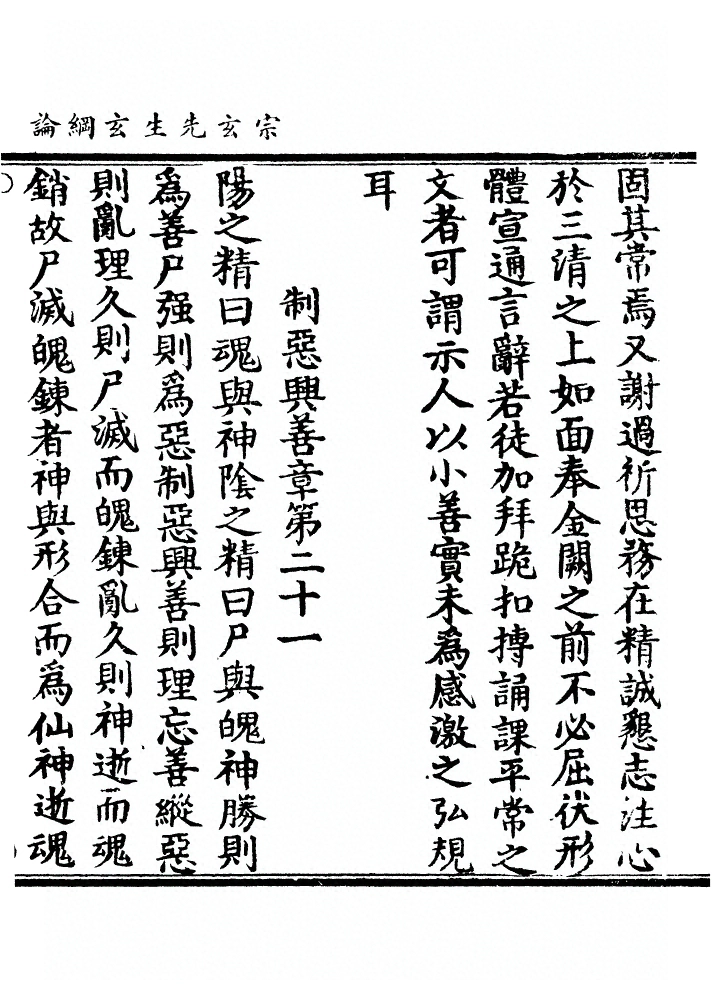 宗玄先生玄綱論
固其常焉又謝過祈恩務在精誠懇志注心
於三清之上如面奉金闕之前不必屈伏形
體宣通言辭若徒加拜跪扣搏誦課平常之
文者可謂示人以小善實未為感激之弘規
耳
制惡興善章第二十一
陽之精曰魂與神陰之精曰尸與魄神勝則
為善尸强則為惡制惡興善則理忘善縱惡
則亂理久則尸滅而魄鍊亂久則神逝而魂
銷故尸滅魄鍊者神與形合而為仙神逝魂